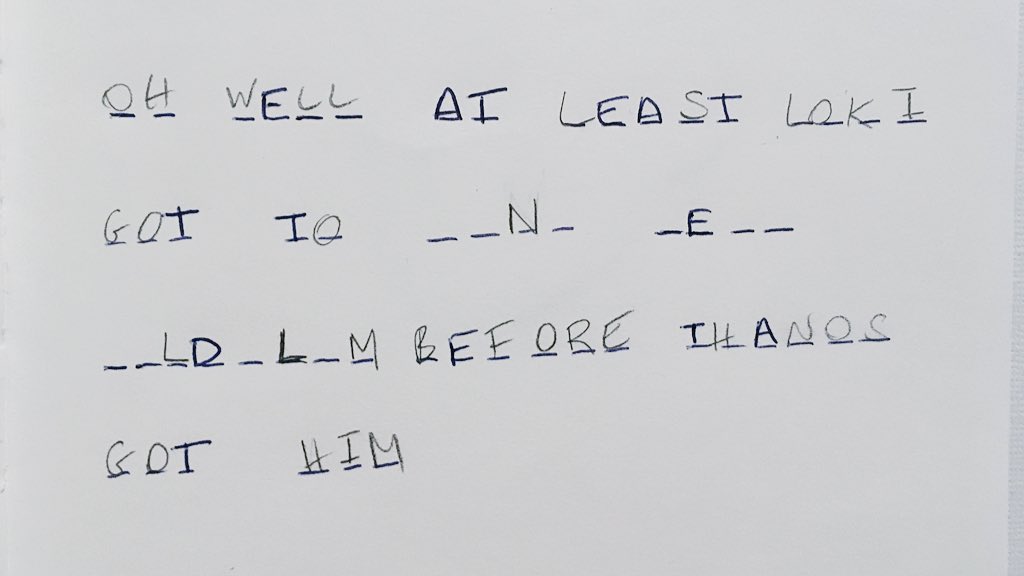 OH WELL AT LEAST LOKI
GOT TO __N_ _E__
__LD_L_M BEFORE THANOS
GOT HIM